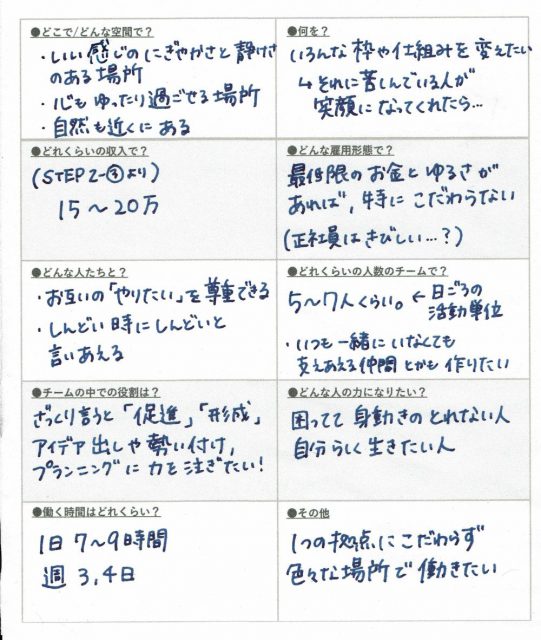 ●どこで/どんな空間で?
・いい感じのにぎやかさと静けさ
のある場所
・心もゆったり過ごせる場所
・自然も近くにある
●何を?
いろんな枠や仕組みを変えたい
↳それに苦しんでいる人が
笑顔になってくれたら…
●どれくらいの収入で?
(STEP2-③より)
15〜20万
●どんな雇用形態で?
最低限のお金とゆるさが
あれば、特にこだわらない
(正社員はきびしい…?)
●どんな人たちと?
・お互いの「やりたい」を尊重できる
・しんどい時にしんどいと
言いあえる
●どれくらいの人数のチームで?
5〜7人くらい。← 日ごろの
活動単位
・いつも一緒にいなくても
支えあえる仲間とかも作りたい
●チームの中での役割は?
ざっくり言うと「促進」「形成」
アイデア出しや勢い付け,
プランニングに力を注ぎたい!
●どんな人の力になりたい?
困ってて身動きのとれない人
自分らしく生きたい人
●働く時間はどれくらい?
1日 7〜9時間
週 3,4日
●その他
1つの拠点にこだわらず
色々な場所で働きたい